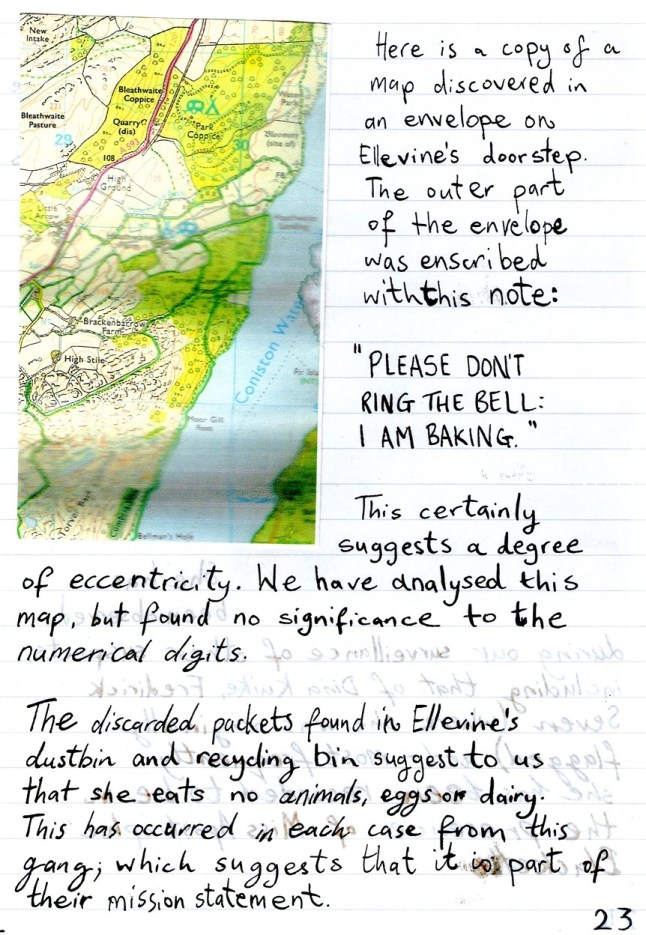 New
Intake
Bleathwaite
Coppice
Bleathwaite
Pasture
29
Quarry
(dis)
Park
Coppice
30
108
High
Ground
Brackenbarrow
Farm
High Stile
Coniston Wat
Moor Gill
Foot
Torver Back
Bellman's Hole
Here is a copy of a
map discovered in
an envelope on
Ellevine's doorstep.
The outer part
of the envelope
was enscribed
with this note:
"PLEASE DON'T
RING THE BELL:
I AM BAKING."
This certainly
suggests a degree
of eccentricity. We have analysed this
map, but found no significance to the
numerical digits.
The discarded packets found in Ellevine's
dustbin and recycling bin suggest to us
that she eats no animals, eggs or dairy.
This has occurred in each case from this
gang; which suggests that it is part of
their mission statement.
23